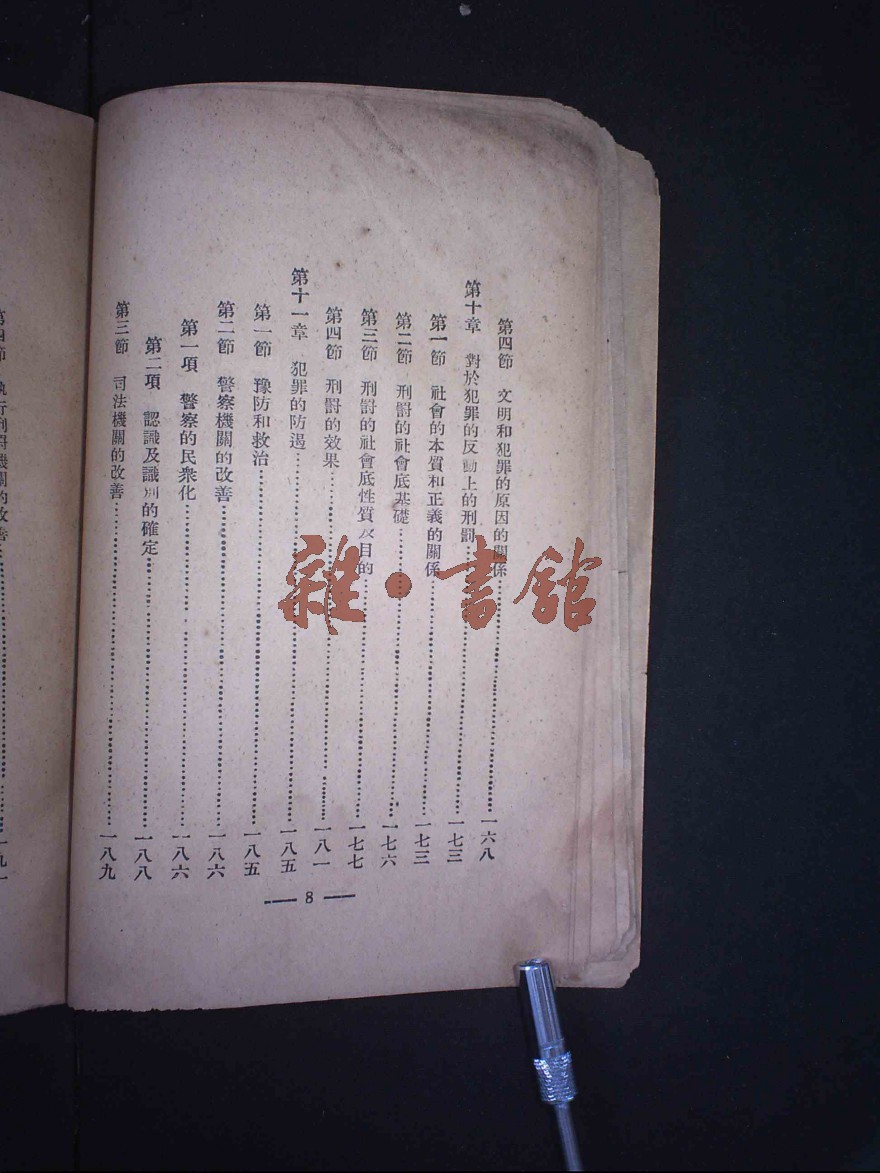 第四節　文明和犯罪的原因的關係……一六八
第十章　對於犯罪的反動上的刑罰……一七三
第一節　社會的本質和正義的關係……一七三
第二節　刑罰的社會底基礎……一七六
第三節　刑罰的社會底性質及目的……一七七
第四節　刑罰的效果……一八一
第十一章　犯罪的防遏……一八五
第一節　豫防和救治……一八五
第二節　警察機關的改善……一八六
第一項　警察的民衆化……一八六
第二項　認識及識別的確定……一八八
第三節　司法機關的改善……一八九
— 8 —
第四節　執行刑罰機關的改善……一九一
雜·書館